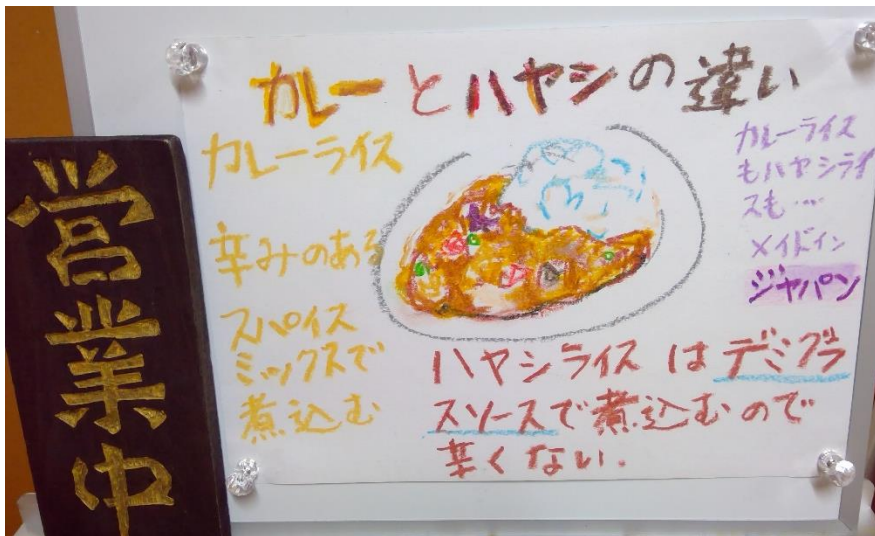 営業中
カレーとハヤシの違い
カレーライス
辛みのある
スパイス
ミックスで
煮込む
カレーライス
もハヤシライ
スも…
メイドイン
ジャパン
ハヤシライスはデミグラ
スソースで煮込むので
辛くない.